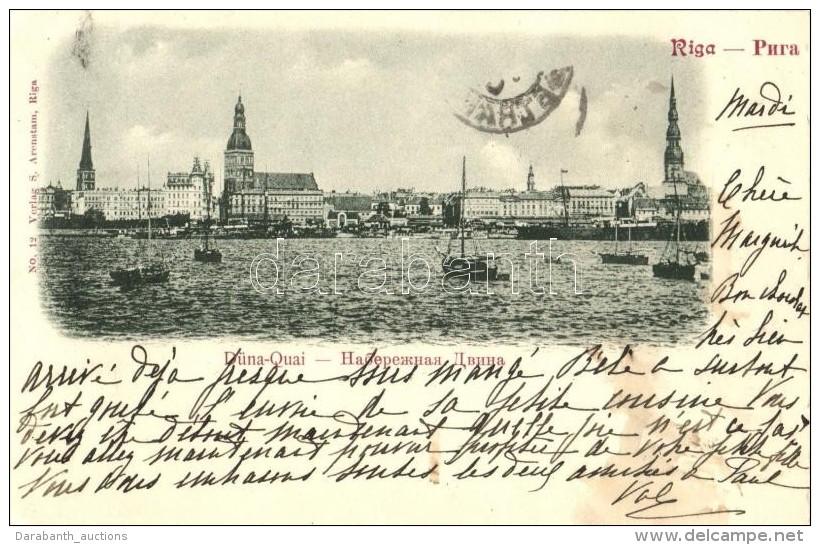 Riga — Рига
No. 12 Verlag S. Arenstam, Riga
Mardi
Chère
Marguerite
Bon chocolat
très bien
Düna-Quai — Набережная Двина
arrivé déjà presque tous mangé Bébé a surtout
fort goûté l'envoi de sa petite cousine Vous
devez être
maintenant quelle joie n'est ce pas
Vous allez maintenant pouvoir profiter de votre petite fille
Nous vous embrassons toutes les deux amitiés à Paul
darabanth
Darabanth_auctions
www.delcampe.net